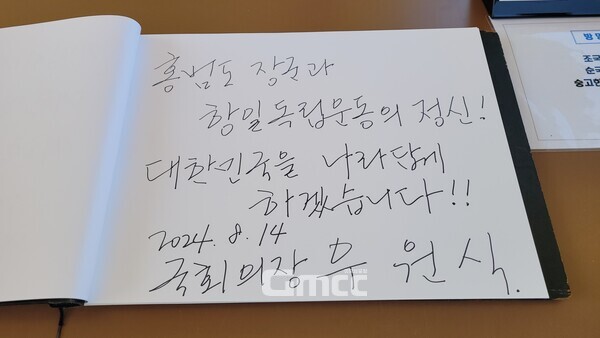 홍범도 장군과
항일독립운동의 정신!
대한민국을 나라답게
하겠습니다!!
2024. 8. 14
국회의장 우 원 식.
Gmcc
방명
조국
순국
숭고한